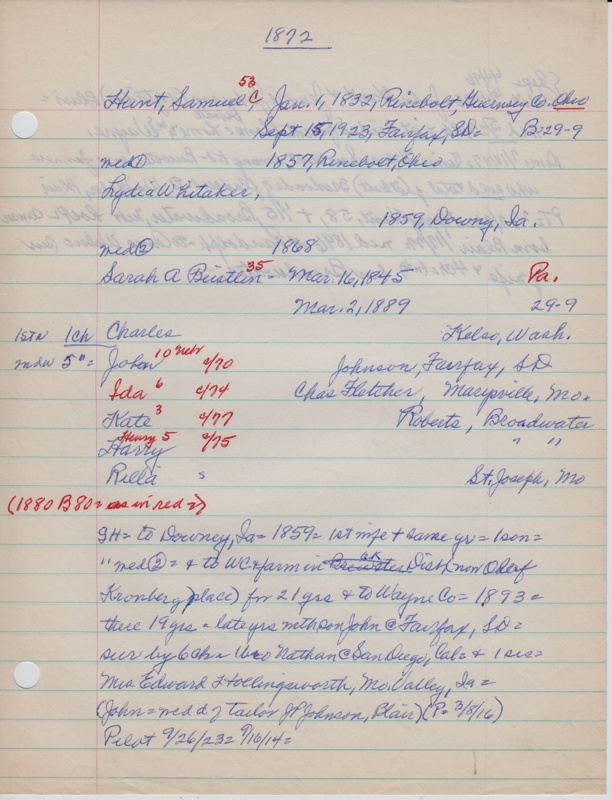 1872
53
Hunt, Samuel C, Jan. 1, 1832, Rinebolt, Guernsey Co. Ohio
Sept 15, 1923, Fairfax, SD= B:29-9
med① 1857, Rinebolt, Ohio
Lydia Whitaker,
1859, Downy, Ia.
med② 1868
Sarah A Beistlin 35 - Mar. 16, 1845 Pa.
Mar. 2, 1889 29-9
1stn 1ch Charles Kelso, Wash.
mdn 5"= John 10 Nebr c/70 Johnson, Fairfax, SD
Ida 6 c/74 Chas Fletcher, Maryville, Mo.
Kate 3 c/77 Roberts, Broadwater
Henry 5
Harry c/75 " "
Rilla s St. Joseph, Mo
(1880 B80= as in red=)
SH= to Downey, Ia= 1859= 1st wife + same yr= 1 son=
" med②= & to WC & farm in Dist, now
Kronberg place) for 21 yrs & to Wayne Co= 1893=
there 19 yrs= late yrs with son John @ Fairfax, SD=
sur by 6 ch= bro Nathan @ San Diego, Cal= & 1 sis=
Mrs Edward Hollingsworth, Mo. Valley, Ia=
(John= med d of tailor JP Johnson, Blair) (P= 3/8/16)
Pilot 9/26/23= 9/16/14=